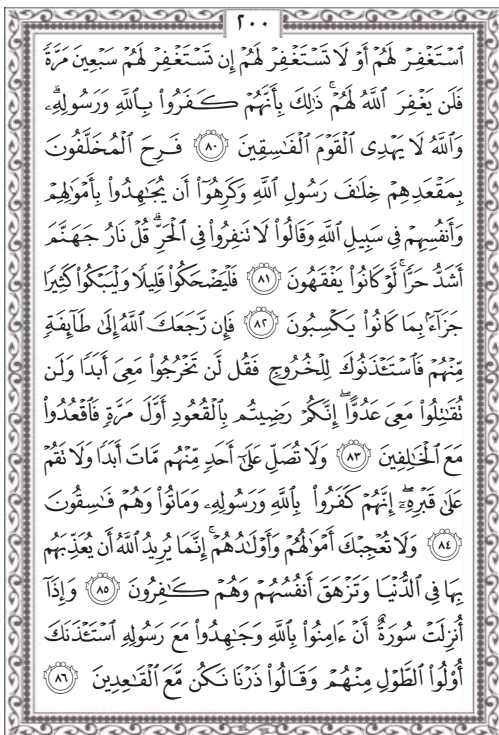 ٢٠٠
ٱسْتَغْفِرْ لَهُمْ أَوْ لَا تَسْتَغْفِرْ لَهُمْ إِن تَسْتَغْفِرْ لَهُمْ سَبْعِينَ مَرَّةً
فَلَن يَغْفِرَ ٱللَّهُ لَهُمْ ۚ ذَٰلِكَ بِأَنَّهُمْ كَفَرُوا۟ بِٱللَّهِ وَرَسُولِهِۦ ۗ
وَٱللَّهُ لَا يَهْدِى ٱلْقَوْمَ ٱلْفَـٰسِقِينَ ٨٠ فَرِحَ ٱلْمُخَلَّفُونَ
بِمَقْعَدِهِمْ خِلَـٰفَ رَسُولِ ٱللَّهِ وَكَرِهُوٓا۟ أَن يُجَـٰهِدُوا۟ بِأَمْوَٰلِهِمْ
وَأَنفُسِهِمْ فِى سَبِيلِ ٱللَّهِ وَقَالُوا۟ لَا تَنفِرُوا۟ فِى ٱلْحَرِّ ۗ قُلْ نَارُ جَهَنَّمَ
أَشَدُّ حَرًّا ۚ لَّوْ كَانُوا۟ يَفْقَهُونَ ٨١ فَلْيَضْحَكُوا۟ قَلِيلًا وَلْيَبْكُوا۟ كَثِيرًا
جَزَآءًۢ بِمَا كَانُوا۟ يَكْسِبُونَ ٨٢ فَإِن رَّجَعَكَ ٱللَّهُ إِلَىٰ طَآئِفَةٍ
مِّنْهُمْ فَٱسْتَـْٔذَنُوكَ لِلْخُرُوجِ فَقُل لَّن تَخْرُجُوا۟ مَعِىَ أَبَدًا وَلَن
تُقَـٰتِلُوا۟ مَعِىَ عَدُوًّا ۖ إِنَّكُمْ رَضِيتُم بِٱلْقُعُودِ أَوَّلَ مَرَّةٍ فَٱقْعُدُوا۟
مَعَ ٱلْخَـٰلِفِينَ ٨٣ وَلَا تُصَلِّ عَلَىٰٓ أَحَدٍ مِّنْهُم مَّاتَ أَبَدًا وَلَا تَقُمْ
عَلَىٰ قَبْرِهِۦٓ ۖ إِنَّهُمْ كَفَرُوا۟ بِٱللَّهِ وَرَسُولِهِۦ وَمَاتُوا۟ وَهُمْ فَـٰسِقُونَ
٨٤ وَلَا تُعْجِبْكَ أَمْوَٰلُهُمْ وَأَوْلَـٰدُهُمْ ۚ إِنَّمَا يُرِيدُ ٱللَّهُ أَن يُعَذِّبَهُم
بِهَا فِى ٱلدُّنْيَا وَتَزْهَقَ أَنفُسُهُمْ وَهُمْ كَـٰفِرُونَ ٨٥ وَإِذَآ
أُنزِلَتْ سُورَةٌ أَنْ ءَامِنُوا۟ بِٱللَّهِ وَجَـٰهِدُوا۟ مَعَ رَسُولِهِ ٱسْتَـْٔذَنَكَ
أُو۟لُوا۟ ٱلطَّوْلِ مِنْهُمْ وَقَالُوا۟ ذَرْنَا نَكُن مَّعَ ٱلْقَـٰعِدِينَ ٨٦